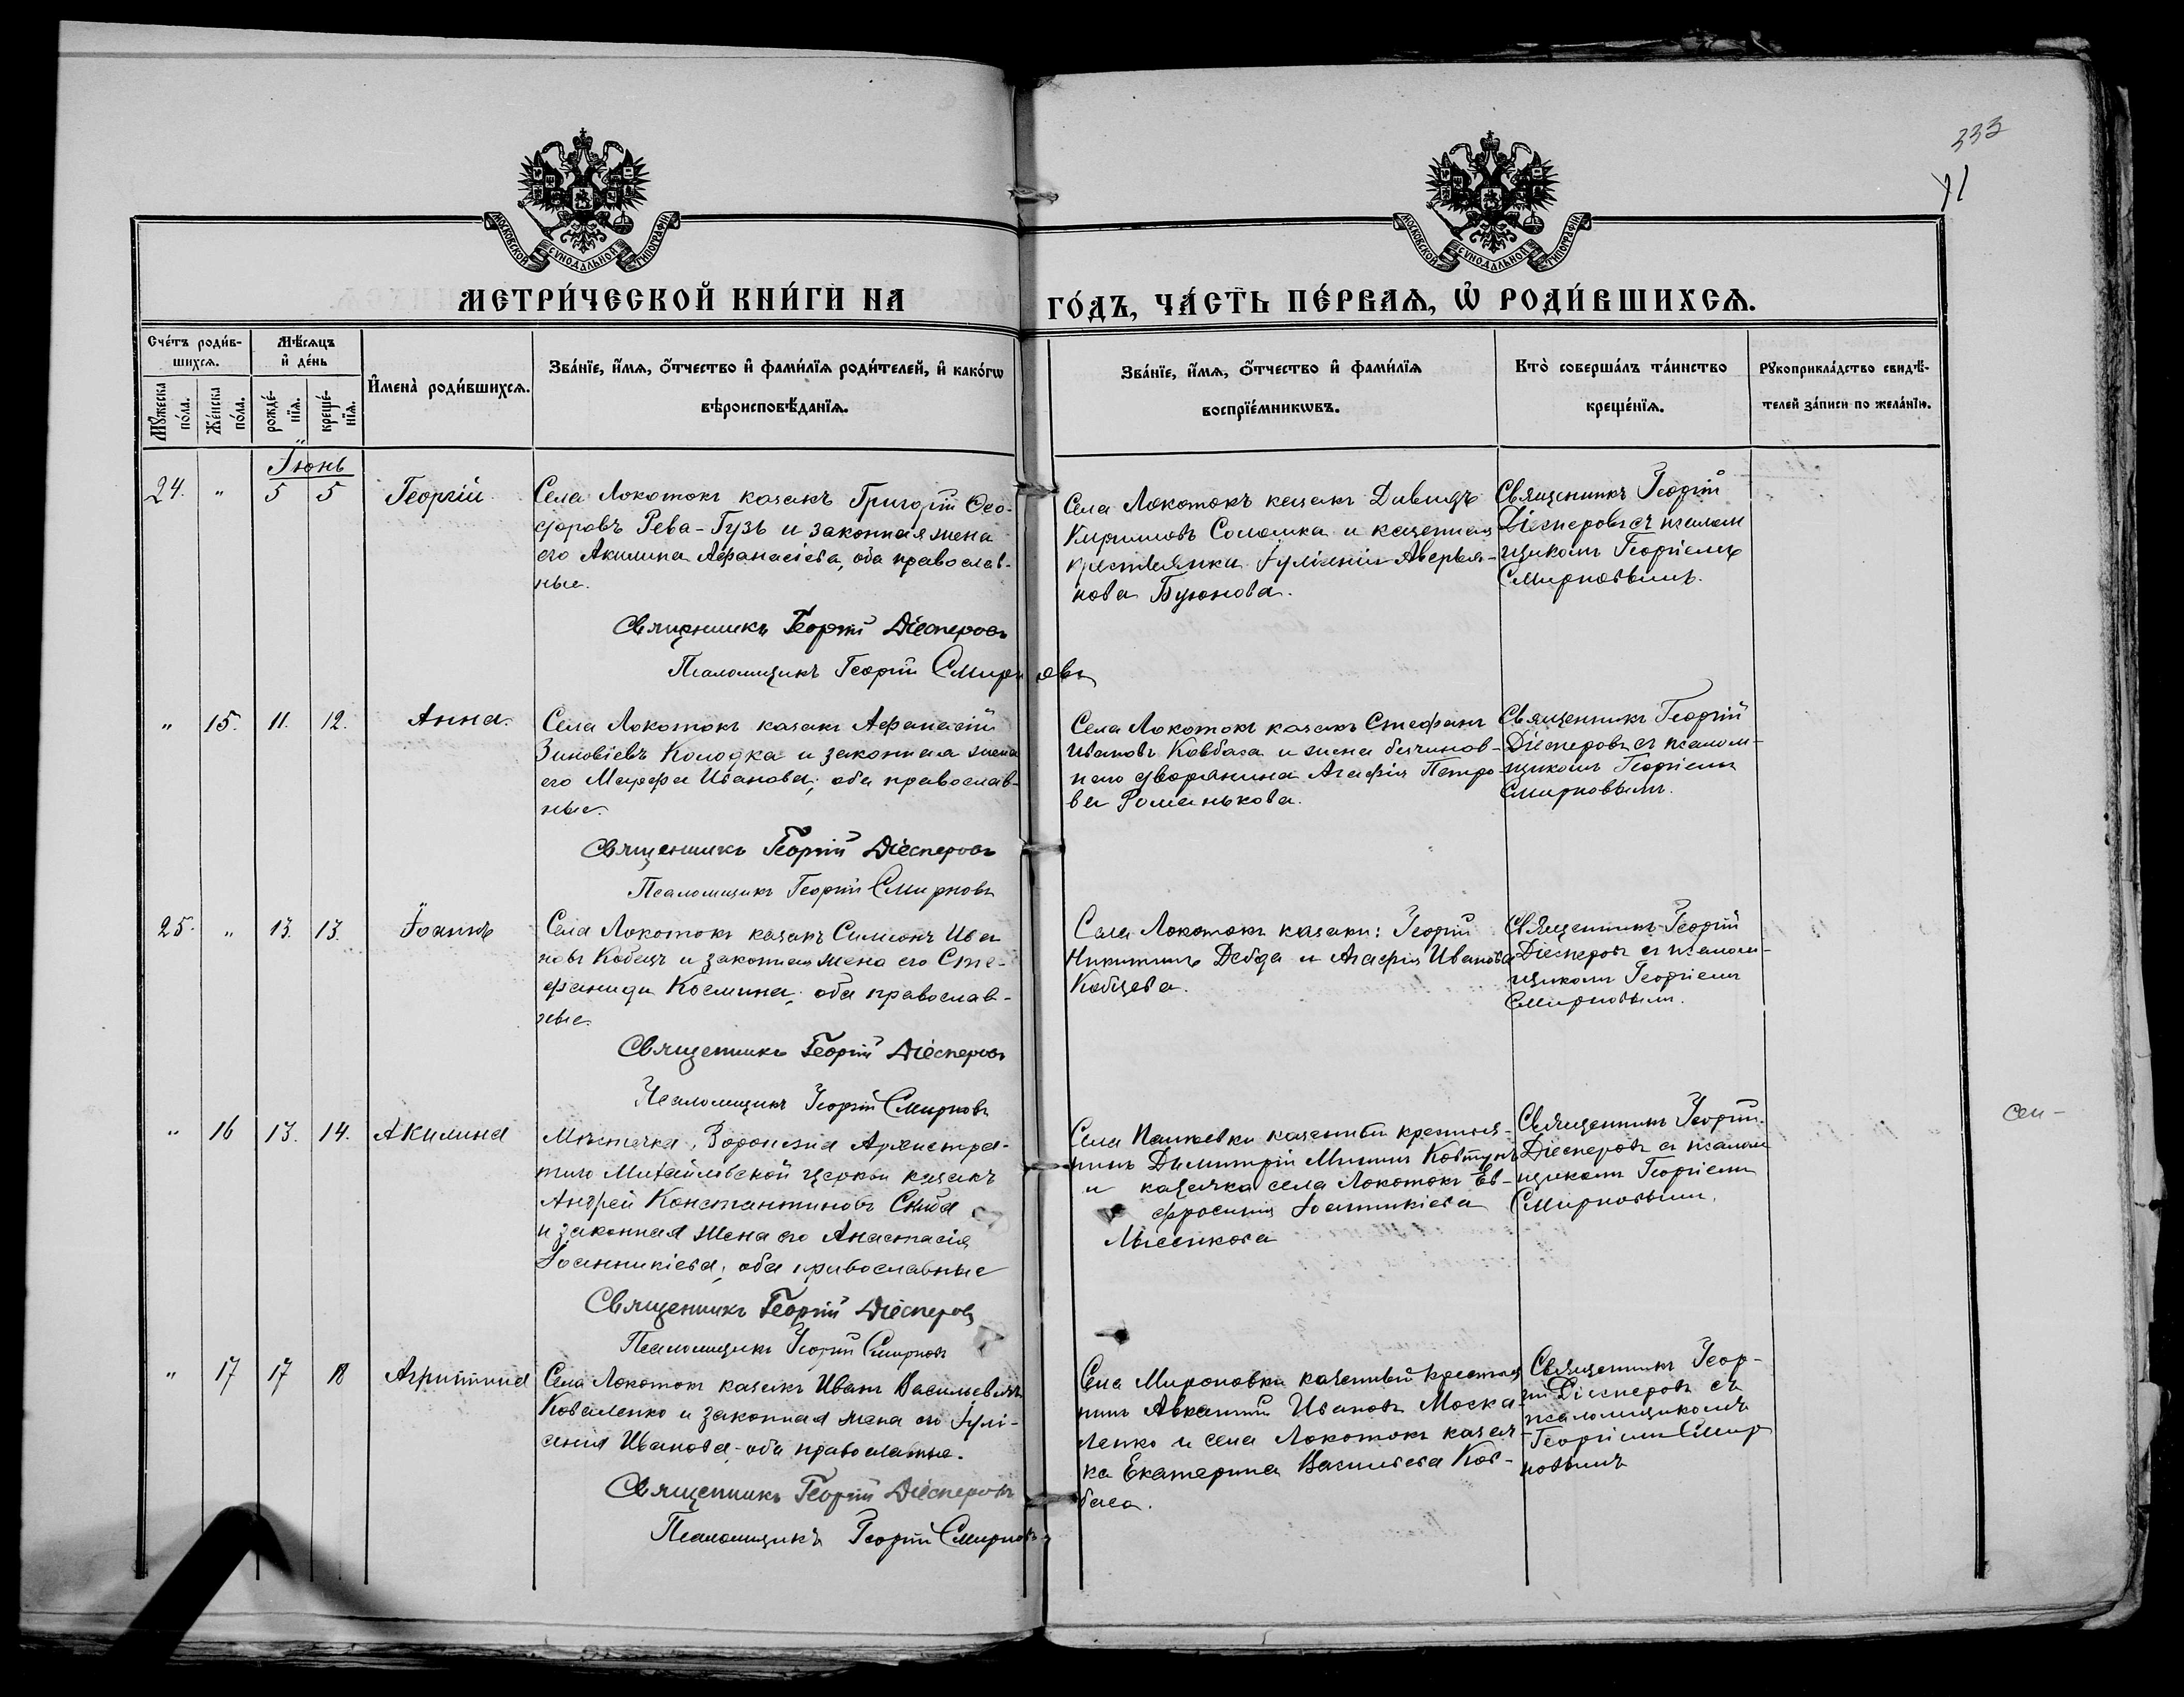 333
11
МОСКОВСКОЙ СѴНОДАЛЬНОЙ ТИПОГРАФІИ
МОСКОВСКОЙ СѴНОДАЛЬНОЙ ТИПОГРАФІИ
МЕТРИ́ЧЕСКОЙ КНИ́ГИ НА
ГО́ДЪ, ЧА́СТЬ ПЕ́РВАѦ, Ѡ҆ РОДИ́ВШИХСѦ.
Сче́тъ роди́в-
шихсѧ.
Мꙋ́жеска
по́ла.
Же́нска
по́ла.
Мѣ́сѧцъ
и҆ де́нь
рожде́-
нїѧ.
креще́-
нїѧ.
И҆мена̀ роди́вшихсѧ.
Зва́нїе, и҆́мѧ, ѻ҆́тчество и҆ фами́лїѧ роди́телей, и҆ како́гѡ
вѣроисповѣ́данїѧ.
Зва́нїе, и҆́мѧ, ѻ҆́тчество и҆ фами́лїѧ
воспрїе́мникѡвъ.
Кто̀ соверша́лъ та́инство
креще́нїѧ.
Рꙋкоприкла́дство свидѣ́-
телей за́писи по жела́нїю.
Іюнь
24. " 5 5 Георгій
Села Локотокъ казакъ Григорій Ѳео-
форовъ Рева-Гузь и законная жена
его Акилина Афанасіева, оба православ-
ные.
Священникъ Георгій Діесперовъ
Псаломщикъ Георгій Смирновъ
Села Локотокъ казакъ Давидъ
Кирилловъ Соломка и казенная
крестьянка Іуліанія Аверья-
нова Буюнова.
Священникъ Георгій
Діесперовъ съ псалом
щикомъ Георгіемъ
Смирновымъ.
" 15. 11. 12. Анна.
Села Локотокъ казакъ Афанасій
Зиновіевъ Колодка и законная жена
его Марфа Иванова, оба православ-
ные.
Священникъ Георгій Діесперовъ
Псаломщикъ Георгій Смирновъ
Села Локотокъ казакъ Стефанъ
Ивановъ Ковбаса и жена безчинов-
наго дворянина Агафія Петро-
ва Романькова.
Священникъ Георгій
Діесперовъ съ псалом-
щикомъ Георгіемъ
Смирновымъ.
25. " 13. 13. Іоаннъ
Села Локотокъ казакъ Симеонъ Ива
новъ Кобецъ и законная жена его Сте-
фанида Космина, оба православ-
ные.
Священникъ Георгій Діесперовъ
Псаломщикъ Георгій Смирновъ
Села Локотокъ казаки: Георгій
Никитинъ Дебда и Агафія Иванова
Кобцева.
Священникъ Георгій
Діесперовъ съ псалом-
щикомъ Георгіемъ
Смирновымъ.
" 16 13. 14. Акилина
Мѣстечка Воронежа Архистра-
тиго Михайловской церкви казакъ
Андрей Константиновъ
и законная жена его Анастасія
Іоанникіева, оба православные
Священникъ Георгій Діесперовъ
Псаломщикъ Георгій Смирновъ
Села казенный крестья-
нинъ Димитрій Мининъ Ковтунъ
и казачка села Локотокъ Ев-
фросинія Іоанникіева
Мысикова
Священникъ Георгій
Діесперовъ съ псалом
щикомъ Георгіемъ
Смирновымъ.
сен-
" 17 17 18 Агриппина
Села Локотокъ казакъ Иванъ Васильевичъ
Коваленко и законная жена его Іулі-
анія Иванова, оба православные.
Священникъ Георгій Діесперовъ
Псаломщикъ Георгій Смирновъ
Села Мироновки казенный крестья
нинъ Авксентій Ивановъ Моска-
ленко и села Локотокъ казач-
ка Екатерина Васильева Ков-
баса.
Священникъ Геор-
гій Діесперовъ съ
псаломщикомъ
Георгіемъ Смир
новымъ